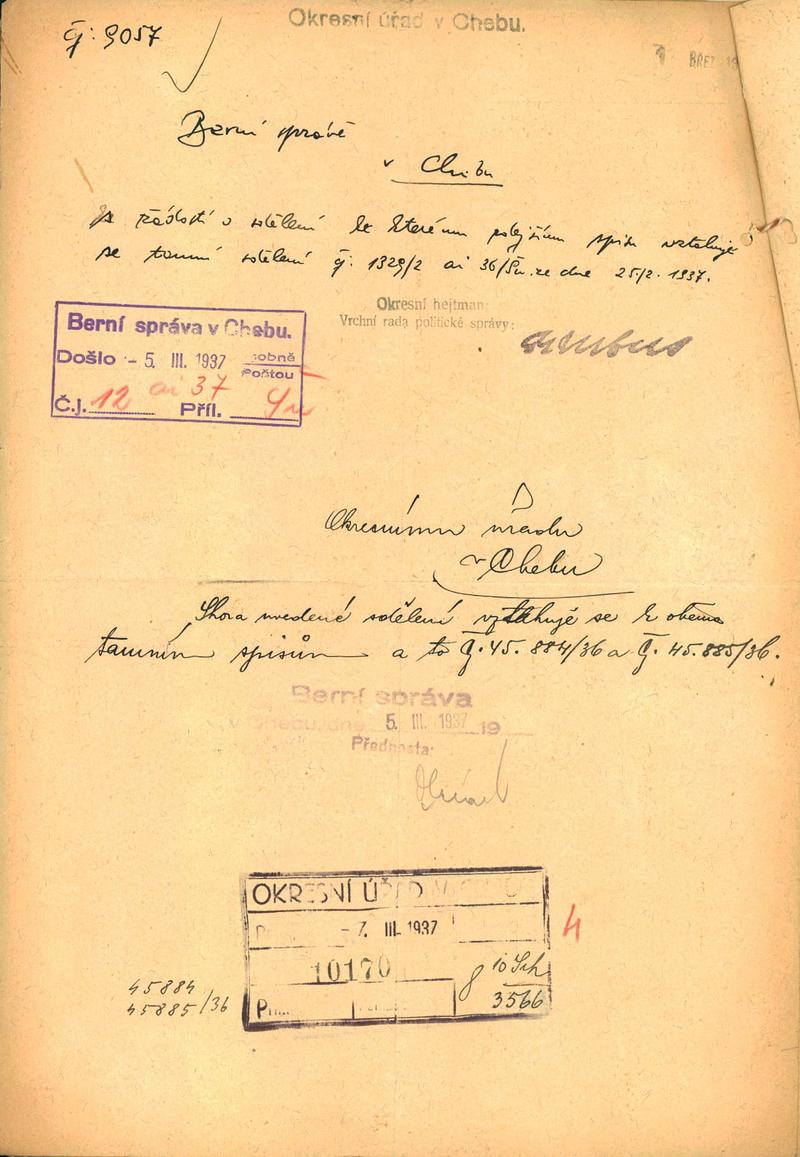 Okresní úřad v Chebu.
Č: 9057
BŘEZ 19
Berní správě
v Chebu
se žádostí o sdělení ke kterému zdejšímu spisu vztahuje
se tamní sdělení č: 1329/2 ai 36/Šu. ze dne 25/2. 1937.
Okresní hejtman:
Vrchní rada politické správy:
Berní správa v Chebu.
Došlo - 5. III. 1937 osobně
Poštou
Č.j. 12 ai 37 Příl.
Okresnímu úřadu
v Chebu
Shora uvedené sdělení vztahuje se k oběma
tamním spisům a to Č. 45.884/36 a Č. 45.885/36.
Berní správa
v Chebu, dne 5. III. 1937 19
Přednosta:
OKRESNÍ ÚŘAD
- 7. III. 1937
4
10170
8 10
3566
45884
45885/36